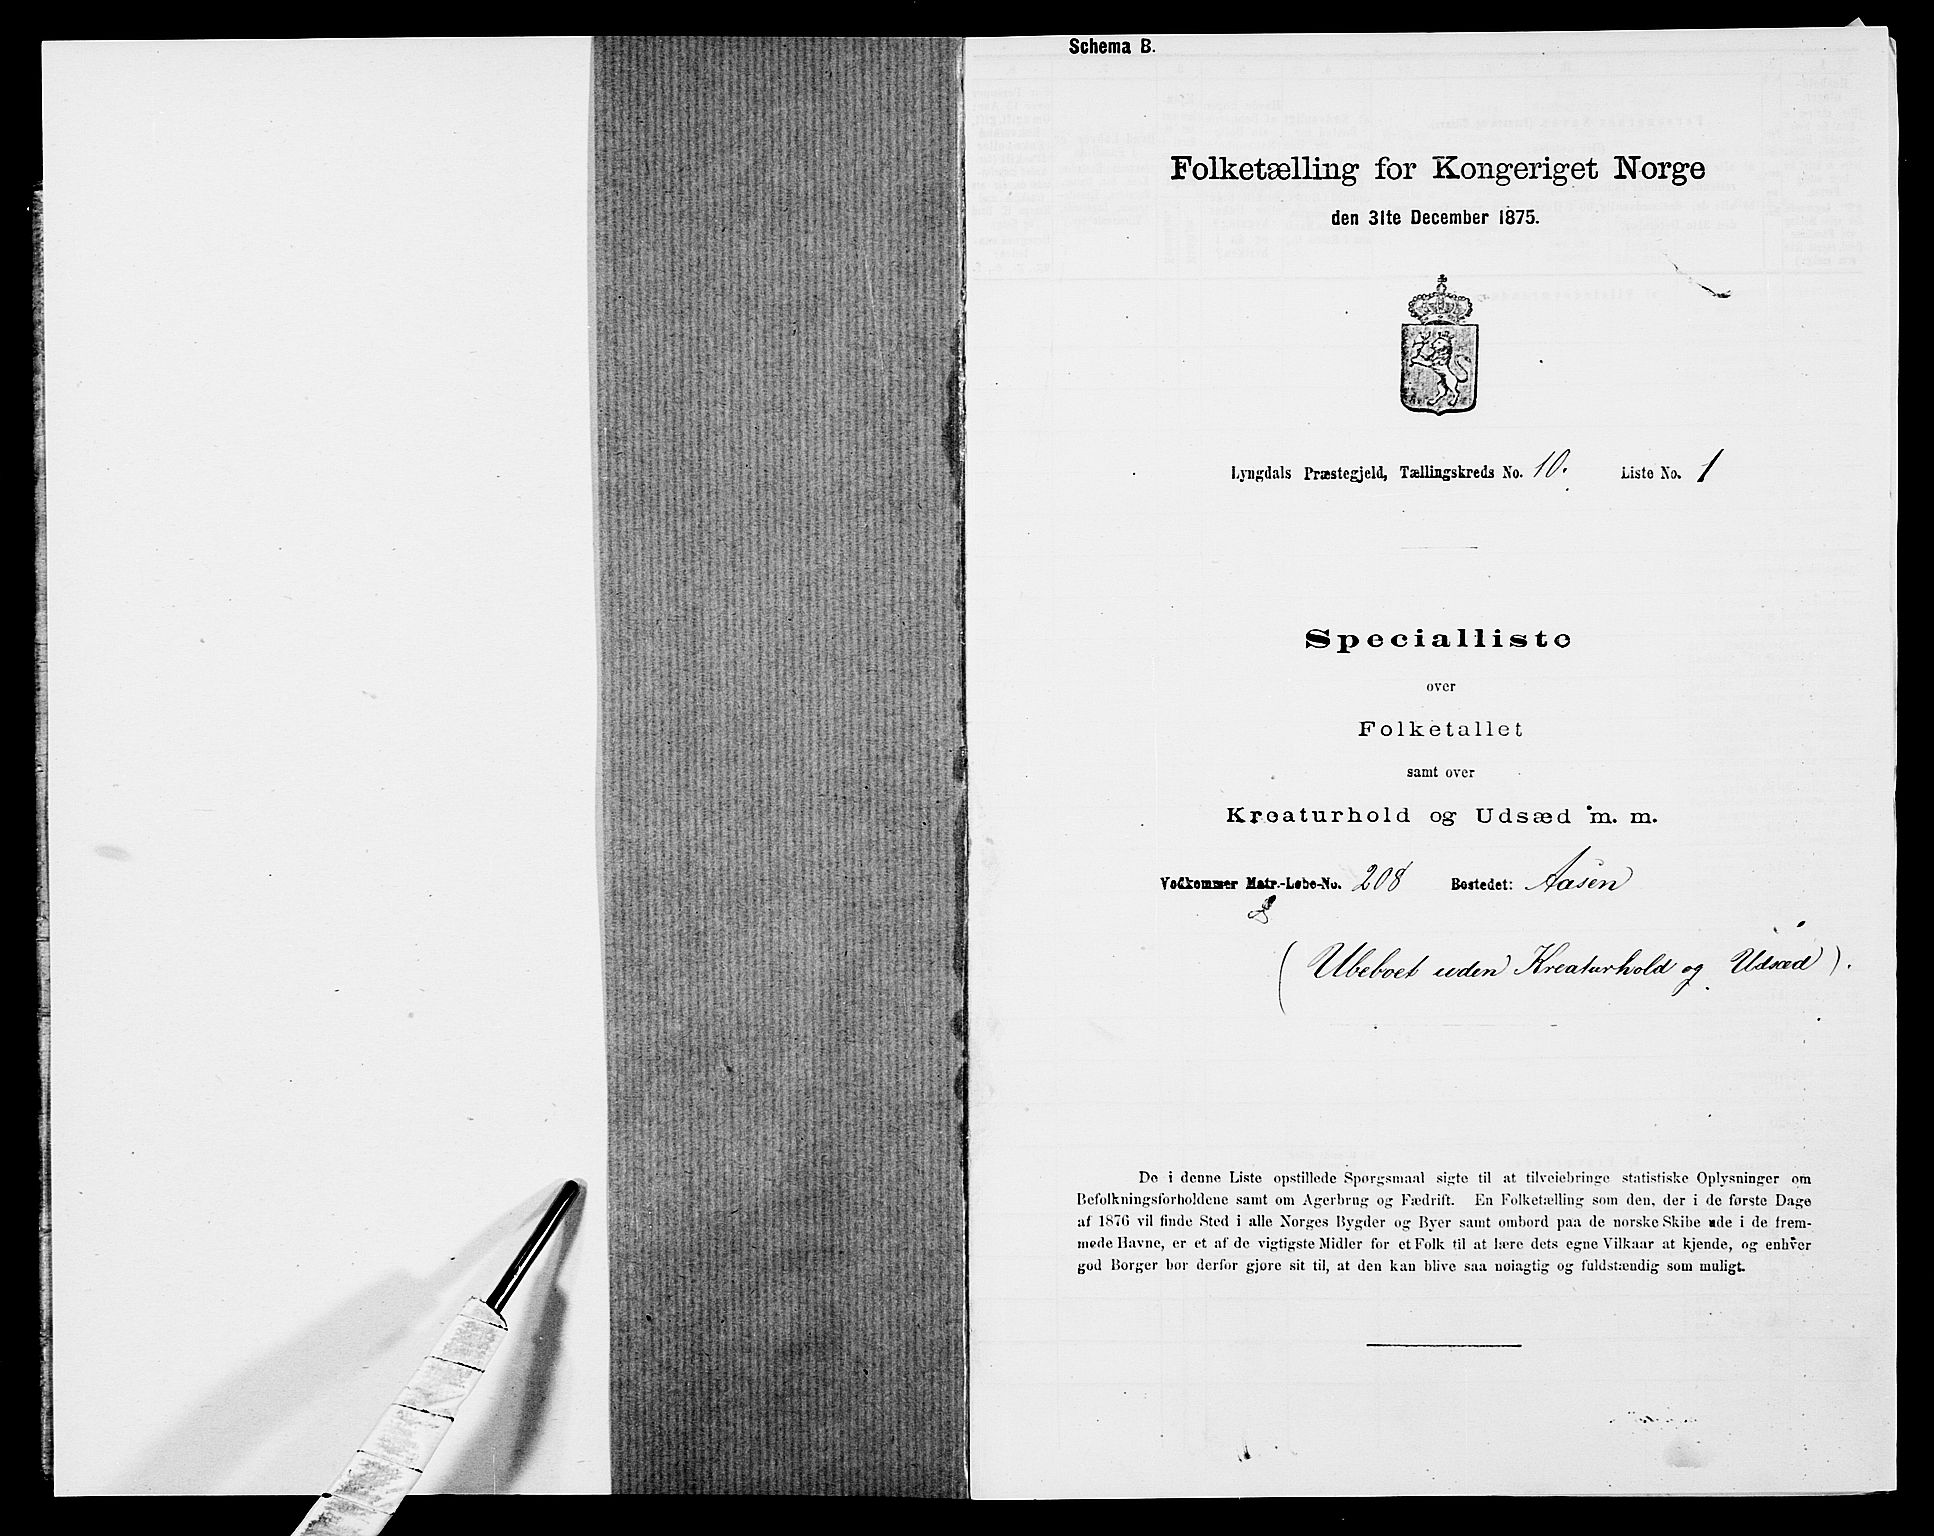 Schema B.
Folketælling for Kongeriget Norge
den 31te December 1875.
Lyngdals Præstegjeld, Tællingskreds No. 10. Liste No. 1
Specialliste
over
Folketallet
samt over
Kreaturhold og Udsæd m. m.
Vedkommer Matr.-Løbe-No. 208 Bostedet: Aasen
(Ubeboet uden Kreaturhold og Udsæd).
De i denne Liste opstillede Spørgsmaal sigte til at tilveiebringe statistiske Oplysninger om
Befolkningsforholdene samt om Agerbrug og Fædrift. En Folketælling som den, der i de første Dage
af 1876 vil finde Sted i alle Norges Bygder og Byer samt ombord paa de norske Skibe ude i de frem-
mede Havne, er et af de vigtigste Midler for et Folk til at lære dets egne Vilkaar at kjende, og enhver
god Borger bør derfor gjøre sit til, at den kan blive saa nøiagtig og fuldstændig som muligt.